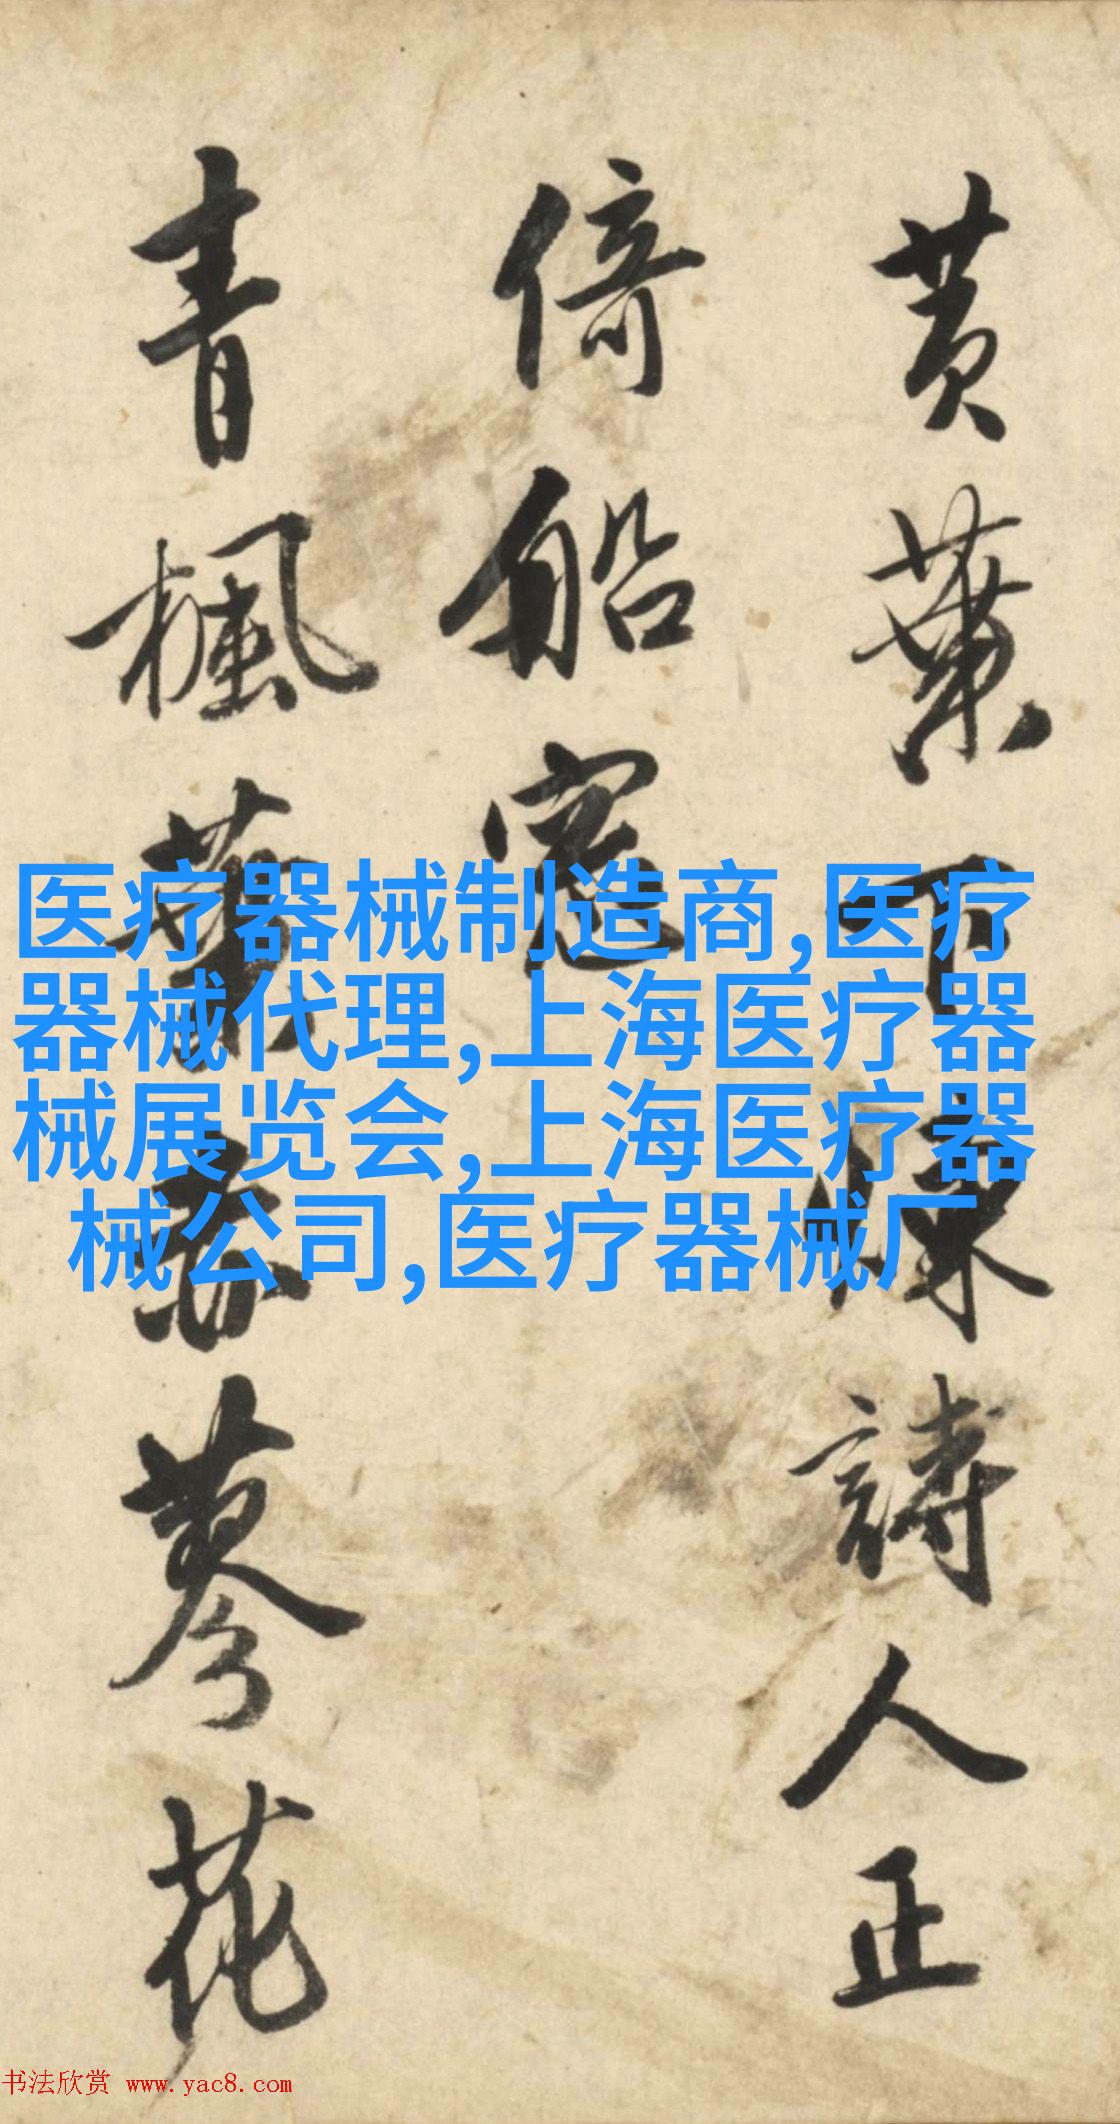 黄葉下陳詩人正
倚船窓
青楓葉赤蓼花
医疗器械制造商,医疗
器械代理,上海医疗器
械展览会,上海医疗器
械公司,医疗器械厂
书法欣赏 www.yac8.com